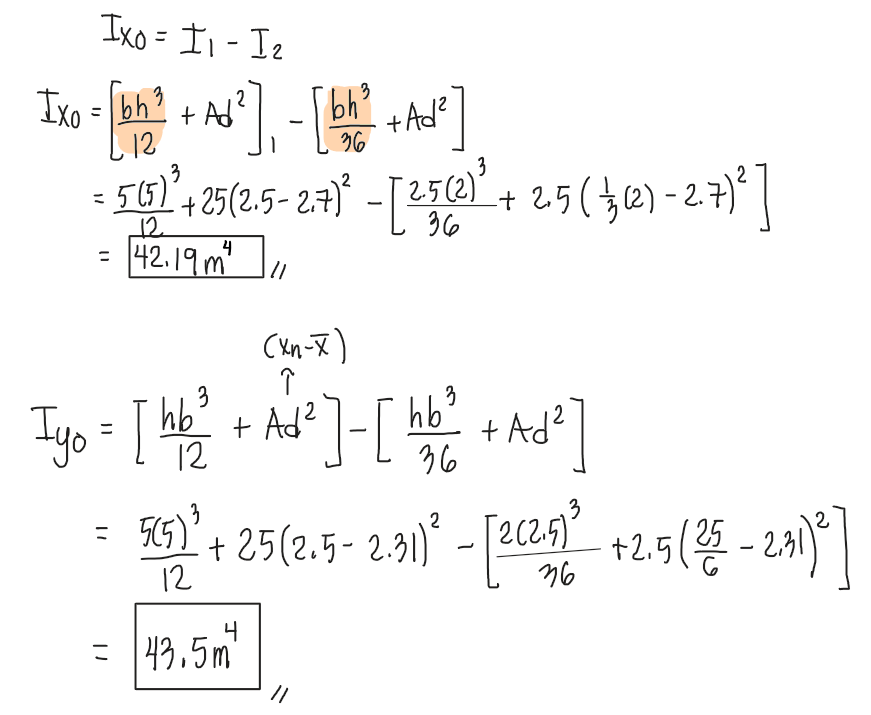 Ix₀ = I₁ - I₂
Ix₀ = [bh³/12 + Ad²]₁ - [bh³/36 + Ad²]
= 5(5)³/12 + 25(2.5 - 2.7)² - [2.5(2)³/36 + 2.5(1/3(2) - 2.7)²]
= 42.19m⁴ //
(xn - x̄)
↑
Iy₀ = [hb³/12 + Ad²] - [hb³/36 + Ad²]
= 5(5)³/12 + 25(2.5 - 2.31)² - [2(2.5)³/36 + 2.5(25/6 - 2.31)²]
= 43.5m⁴ //